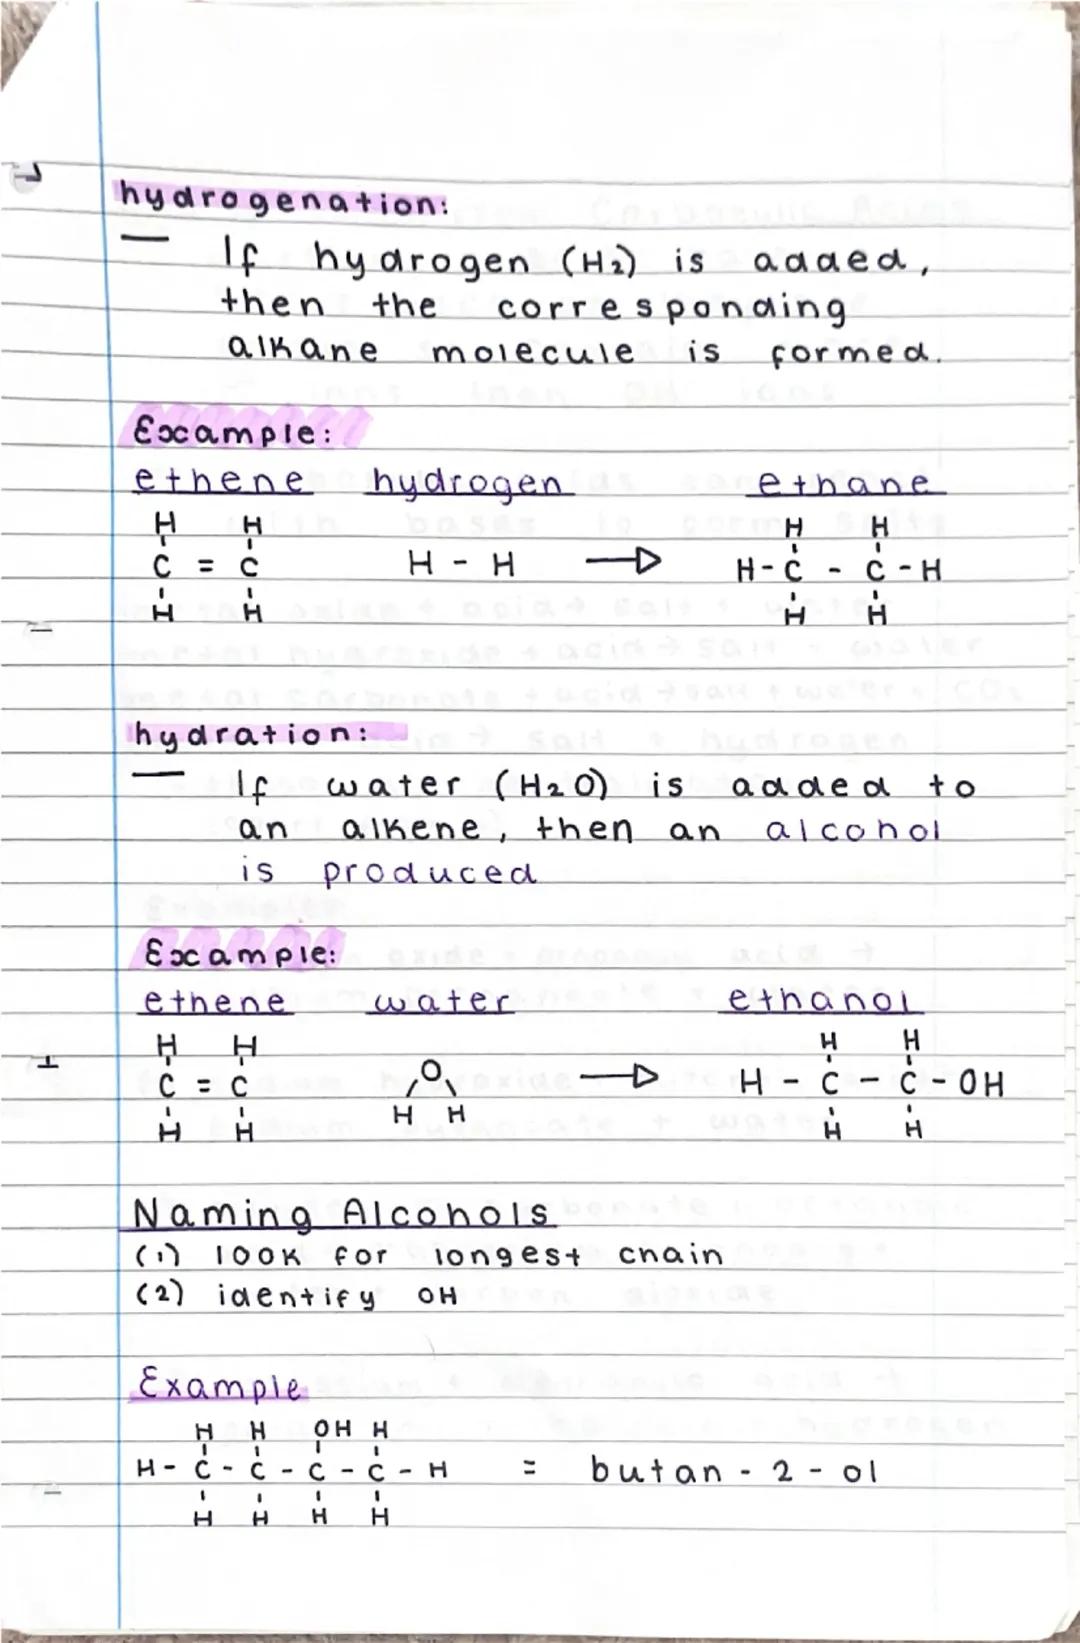 hydrogenation:
— If hydrogen (H₂) is added,
then the corresponding
alkane molecule is formed.
Example:
ethene hydrogen ethane
H H H H
C = C H - H → H - C - C - H
H H H H
hydration:
— If water (H₂O) is added to
an alkene, then an alcohol
is produced
Example:
ethene water ethanol
H H H H
C = C O → H - C - C - OH
H H
H H H H
Naming Alcohols
(1) look for longest chain
(2) identify OH
Example
H H OH H
H - C - C - C - C - H = butan - 2 - ol
H H H H